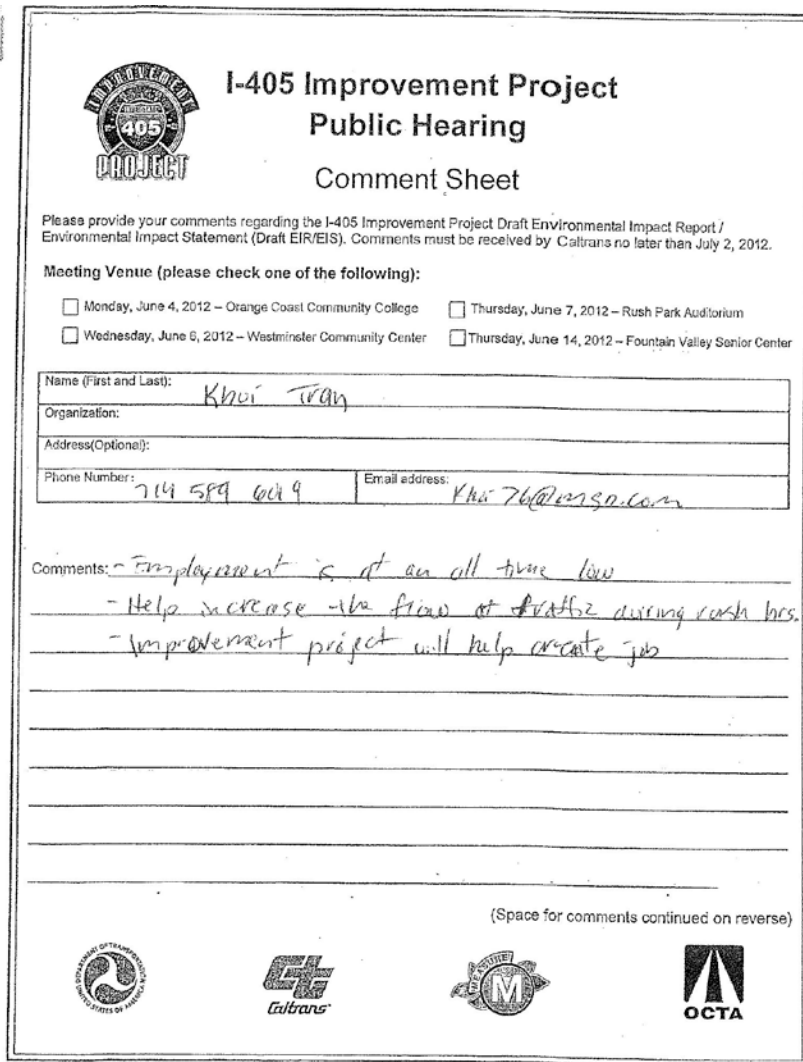 IMPROVEMENT
INTERSTATE
405
PROJECT
I-405 Improvement Project
Public Hearing
Comment Sheet
Please provide your comments regarding the I-405 Improvement Project Draft Environmental Impact Report /
Environmental Impact Statement (Draft EIR/EIS). Comments must be received by Caltrans no later than July 2, 2012.
Meeting Venue (please check one of the following):
Monday, June 4, 2012 – Orange Coast Community College
Thursday, June 7, 2012 – Rush Park Auditorium
Wednesday, June 6, 2012 – Westminster Community Center
Thursday, June 14, 2012 – Fountain Valley Senior Center
Name (First and Last): Khoi Tran
Organization:
Address(Optional):
Phone Number: 714 589
Email address:
Comments: - Employment is at an all time low
- Help increase the flow of traffic during rush hrs.
- Improvement project will help create job
(Space for comments continued on reverse)
DEPARTMENT OF TRANSPORTATION
UNITED STATES OF AMERICA
Caltrans
MEASURE
M
OCTA